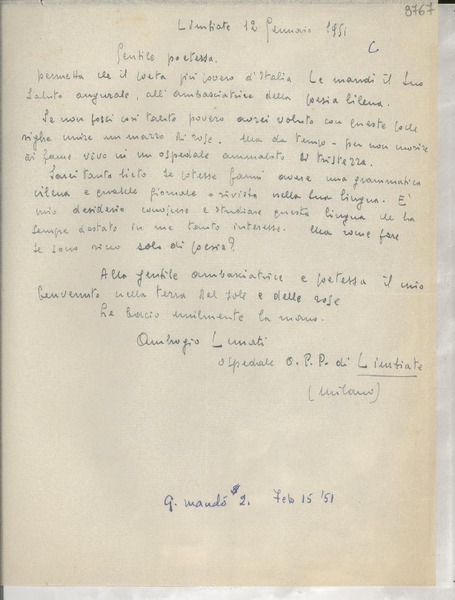 8767
Limbiate 12 Gennaio 1951
C
Gentile poetessa.
permetta che il poeta più povero d'Italia Le mandi il suo
saluto augurale, all'ambasciatrice della poesia Cilena.
Se non fossi così tanto povero avrei voluto con queste poche
righe unire un mazzo di rose. Ma da tempo - per non morire
di fame vivo in un ospedale ammalato di tristezza.
Sarei tanto lieto se potesse farmi avere una grammatica
cilena e qualche giornale o rivista nella sua lingua. E'
mio desiderio conoscere e studiare questa lingua che ha
sempre destato in me tanto interesse. Ma come fare
se sono ricco solo di poesia?
Alla gentile ambasciatrice e poetessa il mio
benvenuto nella terra del sole e delle rose
Le bacio umilmente la mano.
Ambrogio Lunati
Ospedale O. P. P. di Limbiate
(Milano)
G. mandó $ 2. Feb 15 '51